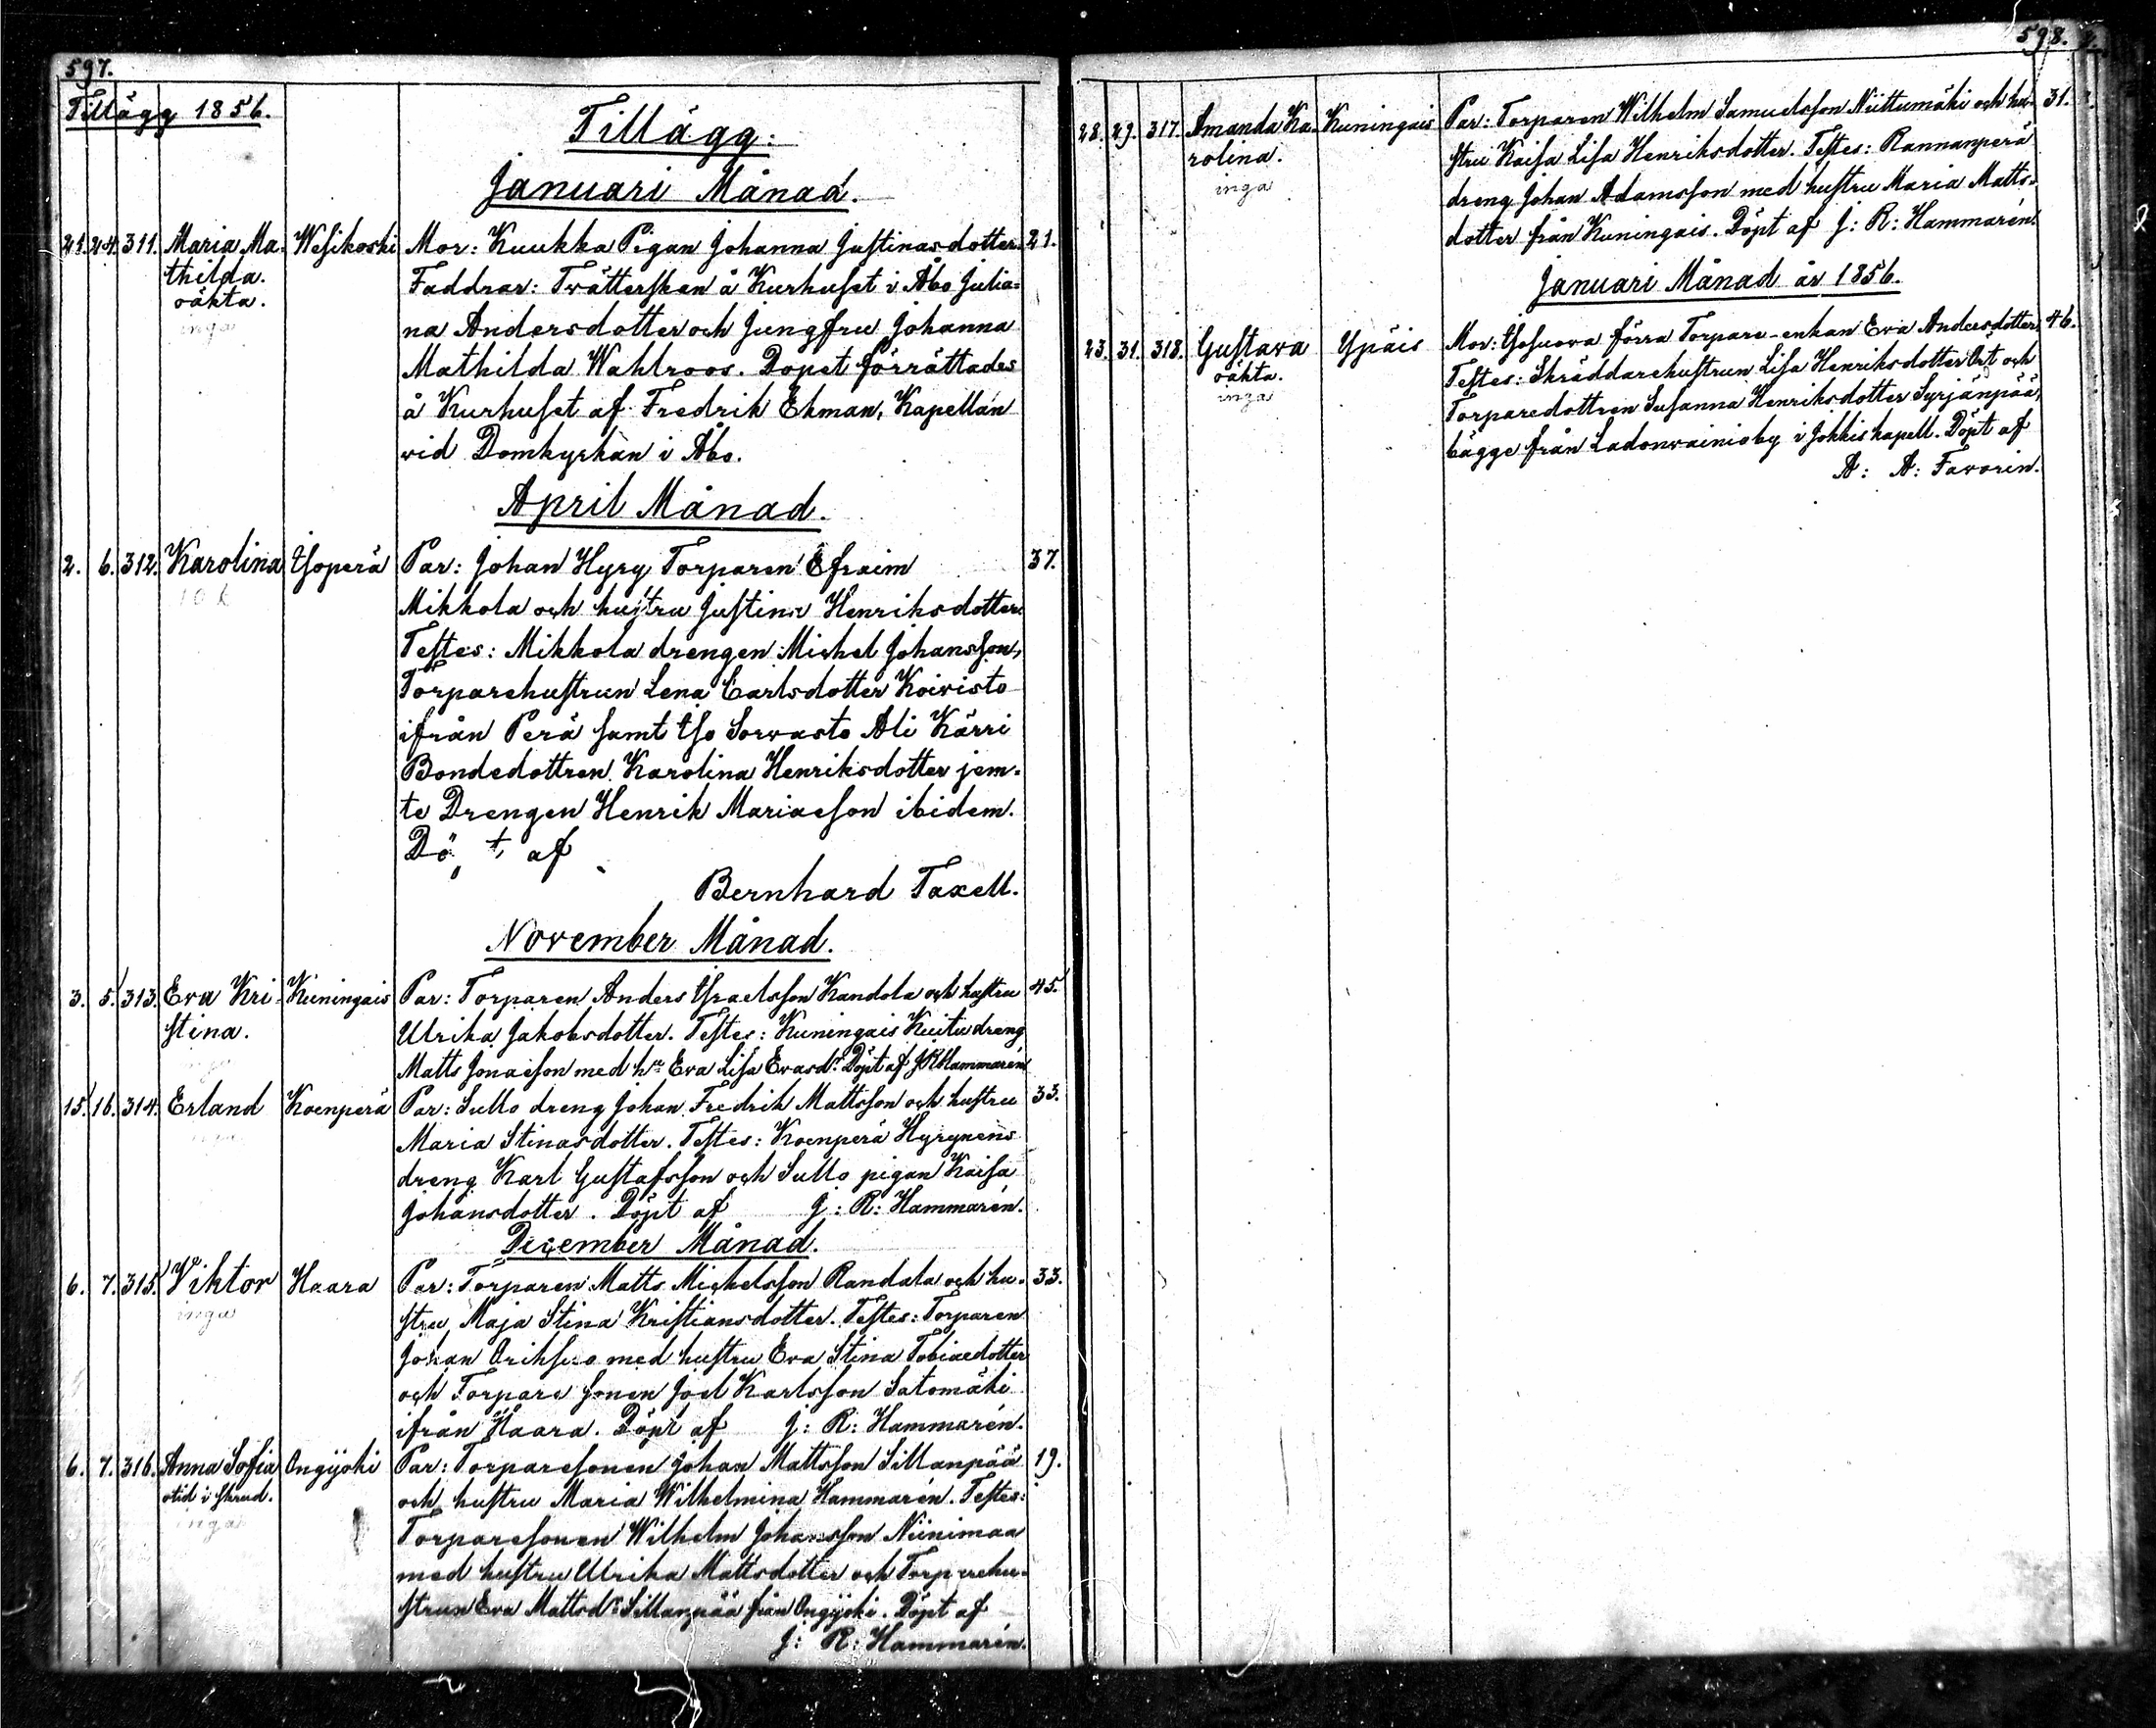 597.
Tillägg 1856.
Tillägg.
Januari Månad.
21. 24. 311. Maria Ma- Wesikoski Mor: Kuukka Pigan Johanna Justinasdotter. 21.
thilda. Faddrar: Twätterskan å Kurhuset i Åbo Julia-
oäkta. na Andersdotter och Jungfru Johanna
inga
Mathilda Wahlroos. Dopet förrättades
å Kurhuset af Fredrik Ekman, Kapellan
vid Domkyrkan i Åbo.
April Månad.
2. 6. 312. Karolina Isoperä Par: Johan Hyry Torparen Efraim 37.
Mikkola och hustru Justina Henriksdotter.
Testes: Mikkola drengen Michel Johansson,
Torparehustrun Lena Carlsdotter Koivisto
ifrån Perä samt Iso Sorvasto Ali Kärri
Bondedottren Karolina Henriksdotter jem-
te Drengen Henrik Mariaeson ibidem.
Dö t af
Bernhard Taxell.
November Månad.
3. 5. 313. Eva Kri- Kuningais Par: Torparen Anders Israelsson Kandola och hustru 45.
stina. Ulrika Jakobsdotter. Testes: Kuningais Kuitu dreng
Matts Jonaeson med hu Eva Lisa Evasdr. Döpt af J R Hammarén
15. 16. 314. Erland Koenperä Par: Sullo dreng Johan Fredrik Mattsson och hustru 33.
Maria Stinasdotter. Testes: Koenperä Hyrynens
dreng Karl Gustafsson och Sullo pigan Kaisa
Johansdotter. Döpt af J: R: Hammarén.
December Månad.
6. 7. 315. Viktor Haara Par: Torparen Matts Michelsson Randala och hu- 33.
inga stru Maja Stina Kristiansdotter. Testes: Torparen
Johan med hustru Eva Stina Tobiaedotter
och Torpare sonen Joel Karlsson Satomäki
ifrån Haara. Döpt af J: R: Hammarén.
6. 7. 316. Anna Sofia Ongijoki Par: Torparesonen Johan Mattsson Sillanpää 19.
och hustru Maria Wilhelmina Hammarén. Testes:
inga Torparesonen Wilhelm Johansson Niinimaa
med hustru Ulrika Mattsdotter och Torparehu-
strun Eva Mattsdr Sillanpää från Ongijoki. Döpt af
J: R: Hammarén.
598.
28. 29. 317. Amanda Ka- Kuningais Par: Torparen Wilhelm Samuelsson Niittumäki och hu- 31.
rolina. stru Kaisa Lisa Henriksdotter. Testes: Rannanperä
inga dreng Johan Adamsson med hustru Maria Matts-
dotter från Kuningais. Döpt af J: R: Hammarén.
Januari Månad år 1856.
23. 31. 318. Gustava Ypäis Mor: Isosuova förra Torpare-enkan Eva Andersdotter. 46.
oäkta. Testes: Skräddarehustrun Lisa Henriksdotter Ort och
inga Torparedottren Susanna Henriksdotter Syrjänpää,
bägge från Ladonvainio by i Jokkis kapell. Döpt af
A: A: Favorin.